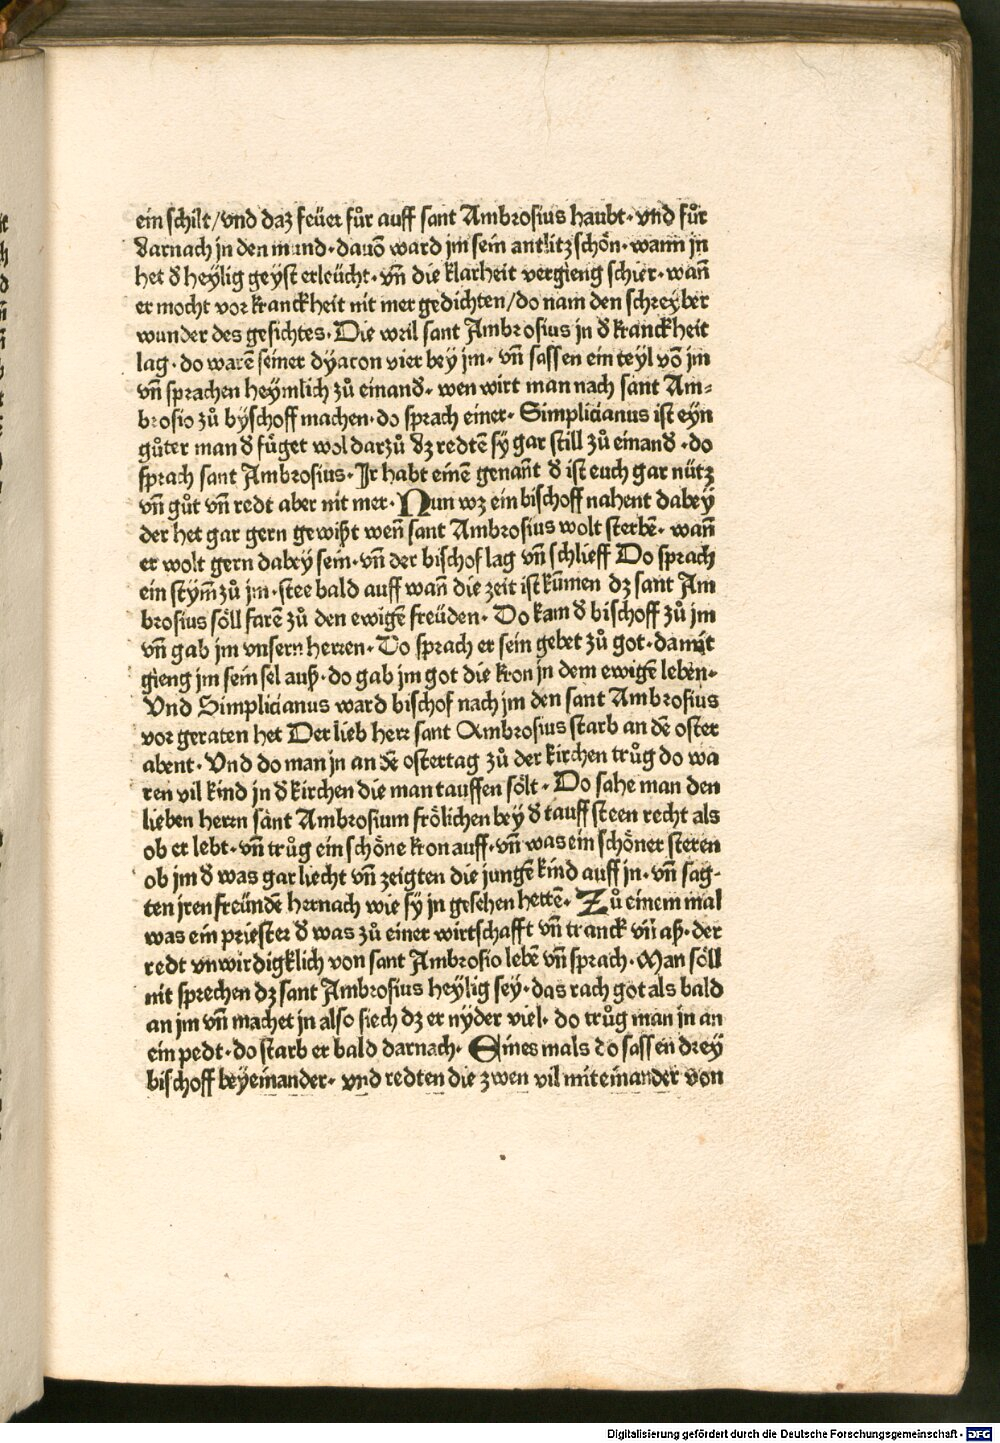 ein schilt/vnd daz feüer fůr auff sant Ambrosius haubt· vnd fůr
darnach jn den mund·dauō ward jm sein antlitz schön· wann jn
het d̕ heylig geyst erleücht· vn̄ die klarheit vergieng schier· wan̄
er mocht vor kranckheit nit mer gedichten/do nam den schreyber
wunder des gesichtes· Die weil sant Ambrosius jn d̕ kranckheit
lag· do warē seiner dyacon vier bey jm· vn̄ sassen ein teyl vō jm
vn̄ sprachen heymlich zů einand̕· wen wirt man nach sant Am=
brosio zů byschoff machen·do sprach einer· Simplicianus ist eyn
gůter man d̕ fůget wol darzů dz redtē sy gar still zů einand̕ ·do
sprach sant Ambrosius· Ir habt einē genan̄t d̕ ist euch gar nütz
vn̄ gůt vn̄ redt aber nit mer· Nun wz ein bischoff nahent dabey
der het gar gern gewißt wen̄ sant Ambrosius wolt sterbē· wan̄
er wolt gern dabey sein· vn̄ der bischof lag vn̄ schlieff Do sprach
ein stym̄ zů jm·stee bald auff wan̄ die zeit ist kūmen dz sant Am
brosius söll farē zů den ewigē freüden· Do kam d̕ bischoff zů jm
vn̄ gab jm vnsern herren· Do sprach er sein gebet zů got·damit
gieng jm sein sel auß·do gab jm got die kron jn dem ewigē leben·
Vnd Simplicianus ward bischof nach jm den sant Ambrosius
vor geraten het Der lieb herr sant Ambrosius starb an dē oster
abent· Vnd do man jn an dē ostertag zů der kirchen trůg do wa
ren vil kind jn d̕ kirchen die man tauffen sölt· Do sahe man den
lieben herrn sant Ambrosium frölichen bey d̕ tauff steen recht als
ob er lebt· vn̄ trůg ein schöne kron auff·vn̄ was ein schöner steren
ob jm d̕ was gar liecht vn̄ zeigten die jungē kind auff jn· vn̄ sag-
ten jren freündē hernach wie sy jn gesehen hettē· Zů einem mal
was ein priester d̕ was zů einer wirtschafft vn̄ tranck vn̄ aß·der
redt vnwirdigklich von sant Ambrosio lebē vn̄ sprach·Man söll
nit sprechen dz sant Ambrosius heylig sey·das rach got als bald
an jm vn̄ machet jn also siech dz er nyder viel· do trůg man jn an
ein pedt·do starb er bald darnach· Eines mals do sassen drey
bischoff beyeinander· vnd redten die zwen vil miteinander von
Digitalisierung gefördert durch die Deutsche Forschungsgemeinschaft - DFG